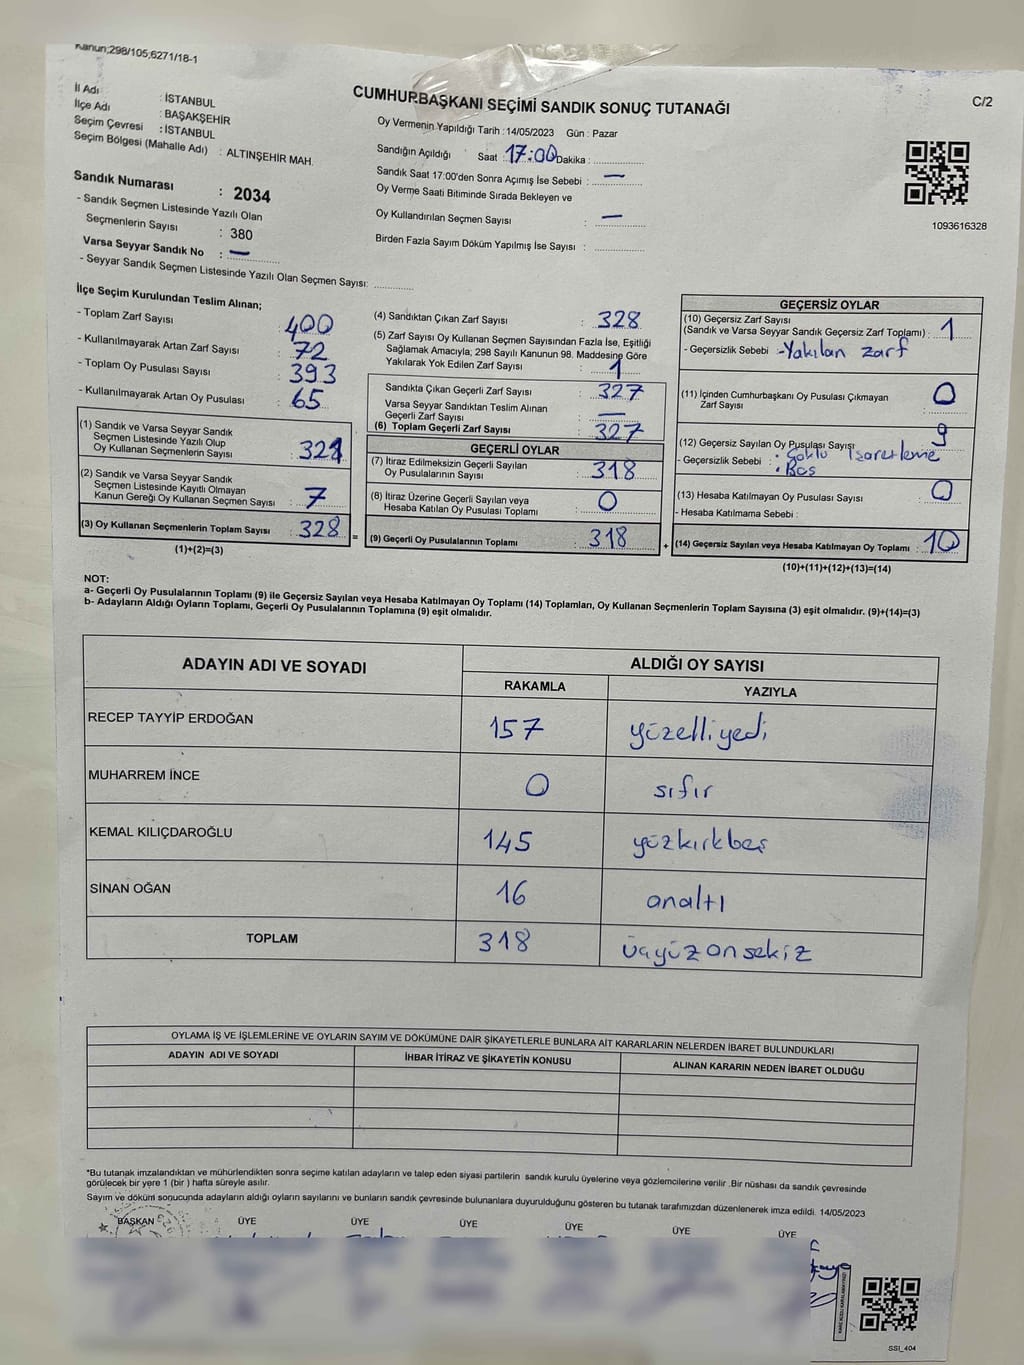 Kanun;298/105;6271/18-1
C/2
CUMHURBAŞKANI SEÇİMİ SANDIK SONUÇ TUTANAĞI
İl Adı : İSTANBUL
İlçe Adı : BAŞAKŞEHİR
Seçim Çevresi : İSTANBUL
Seçim Bölgesi (Mahalle Adı) : ALTINŞEHİR MAH.
Sandık Numarası : 2034
- Sandık Seçmen Listesinde Yazılı Olan
Seçmenlerin Sayısı : 380
Varsa Seyyar Sandık No : —
- Seyyar Sandık Seçmen Listesinde Yazılı Olan Seçmen Sayısı:
Oy Vermenin Yapıldığı Tarih : 14/05/2023 Gün : Pazar
Sandığın Açıldığı Saat : 17:00 Dakika :
Sandık Saat 17:00'den Sonra Açımış İse Sebebi : —
Oy Verme Saati Bitiminde Sırada Bekleyen ve
Oy Kullandırılan Seçmen Sayısı : —
Birden Fazla Sayım Döküm Yapılmış İse Sayısı :
1093616328
İlçe Seçim Kurulundan Teslim Alınan;
- Toplam Zarf Sayısı : 400
- Kullanılmayarak Artan Zarf Sayısı : 72
- Toplam Oy Pusulası Sayısı : 393
- Kullanılmayarak Artan Oy Pusulası : 65
(1) Sandık ve Varsa Seyyar Sandık
Seçmen Listesinde Yazılı Olup
Oy Kullanan Seçmenlerin Sayısı : 321
(2) Sandık ve Varsa Seyyar Sandık
Seçmen Listesinde Kayıtlı Olmayan
Kanun Gereği Oy Kullanan Seçmen Sayısı : 7
(3) Oy Kullanan Seçmenlerin Toplam Sayısı : 328
(1)+(2)=(3)
=
(4) Sandıktan Çıkan Zarf Sayısı : 328
(5) Zarf Sayısı Oy Kullanan Seçmen Sayısından Fazla İse, Eşitliği
Sağlamak Amacıyla; 298 Sayılı Kanunun 98. Maddesine Göre
Yakılarak Yok Edilen Zarf Sayısı : 1
Sandıkta Çıkan Geçerli Zarf Sayısı : 327
Varsa Seyyar Sandıktan Teslim Alınan
Geçerli Zarf Sayısı : —
(6) Toplam Geçerli Zarf Sayısı : 327
GEÇERLİ OYLAR
(7) İtiraz Edilmeksizin Geçerli Sayılan
Oy Pusulalarının Sayısı : 318
(8) İtiraz Üzerine Geçerli Sayılan veya
Hesaba Katılan Oy Pusulası Toplamı : 0
(9) Geçerli Oy Pusulalarının Toplamı : 318
+
GEÇERSİZ OYLAR
(10) Geçersiz Zarf Sayısı
(Sandık ve Varsa Seyyar Sandık Geçersiz Zarf Toplamı) : 1
- Geçersizlik Sebebi - Yakılan zarf
(11) İçinden Cumhurbaşkanı Oy Pusulası Çıkmayan
Zarf Sayısı : 0
(12) Geçersiz Sayılan Oy Pusulası Sayısı : 9
- Geçersizlik Sebebi : Çoklu İşaretleme
• Boş
(13) Hesaba Katılmayan Oy Pusulası Sayısı : 0
- Hesaba Katılmama Sebebi :
(14) Geçersiz Sayılan veya Hesaba Katılmayan Oy Toplamı : 10
(10)+(11)+(12)+(13)=(14)
NOT:
a- Geçerli Oy Pusulalarının Toplamı (9) ile Geçersiz Sayılan veya Hesaba Katılmayan Oy Toplamı (14) Toplamları, Oy Kullanan Seçmenlerin Toplam Sayısına (3) eşit olmalıdır. (9)+(14)=(3)
b- Adayların Aldığı Oyların Toplamı, Geçerli Oy Pusulalarının Toplamına (9) eşit olmalıdır.
ADAYIN ADI VE SOYADI ALDIĞI OY SAYISI
RAKAMLA YAZIYLA
RECEP TAYYİP ERDOĞAN 157 yüzelliyedi
MUHARREM İNCE 0 sıfır
KEMAL KILIÇDAROĞLU 145 yüzkırkbeş
SİNAN OĞAN 16 onaltı
TOPLAM 318 üçyüzonsekiz
OYLAMA İŞ VE İŞLEMLERİNE VE OYLARIN SAYIM VE DÖKÜMÜNE DAİR ŞİKAYETLERLE BUNLARA AİT KARARLARIN NELERDEN İBARET BULUNDUKLARI
ADAYIN ADI VE SOYADI İHBAR İTİRAZ VE ŞİKAYETİN KONUSU ALINAN KARARIN NEDEN İBARET OLDUĞU
*Bu tutanak imzalandıktan ve mühürlendikten sonra seçime katılan adayların ve talep eden siyasi partilerin sandık kurulu üyelerine veya gözlemcilerine verilir .Bir nüshası da sandık çevresinde
görülecek bir yere 1 (bir ) hafta süreyle asılır.
Sayım ve döküm sonucunda adayların aldığı oyların sayılarını ve bunların sandık çevresinde bulunanlara duyurulduğunu gösteren bu tutanak tarafımızdan düzenlenerek imza edildi. 14/05/2023
BAŞKAN ÜYE ÜYE ÜYE ÜYE ÜYE ÜYE
SSI_404